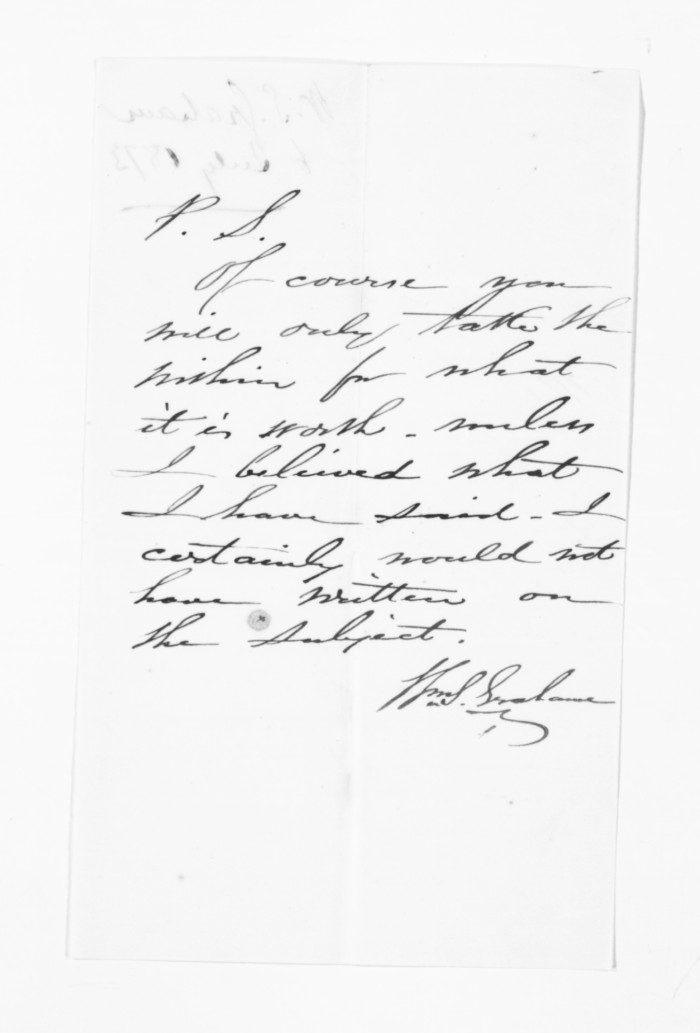 P. S.
Of course you
will only take the
within for what
it is worth - unless
I believed what
I have said - I
certainly would not
have written on
the subject.
Wm S. Grahame
W. S. Grahame
6 July 1873